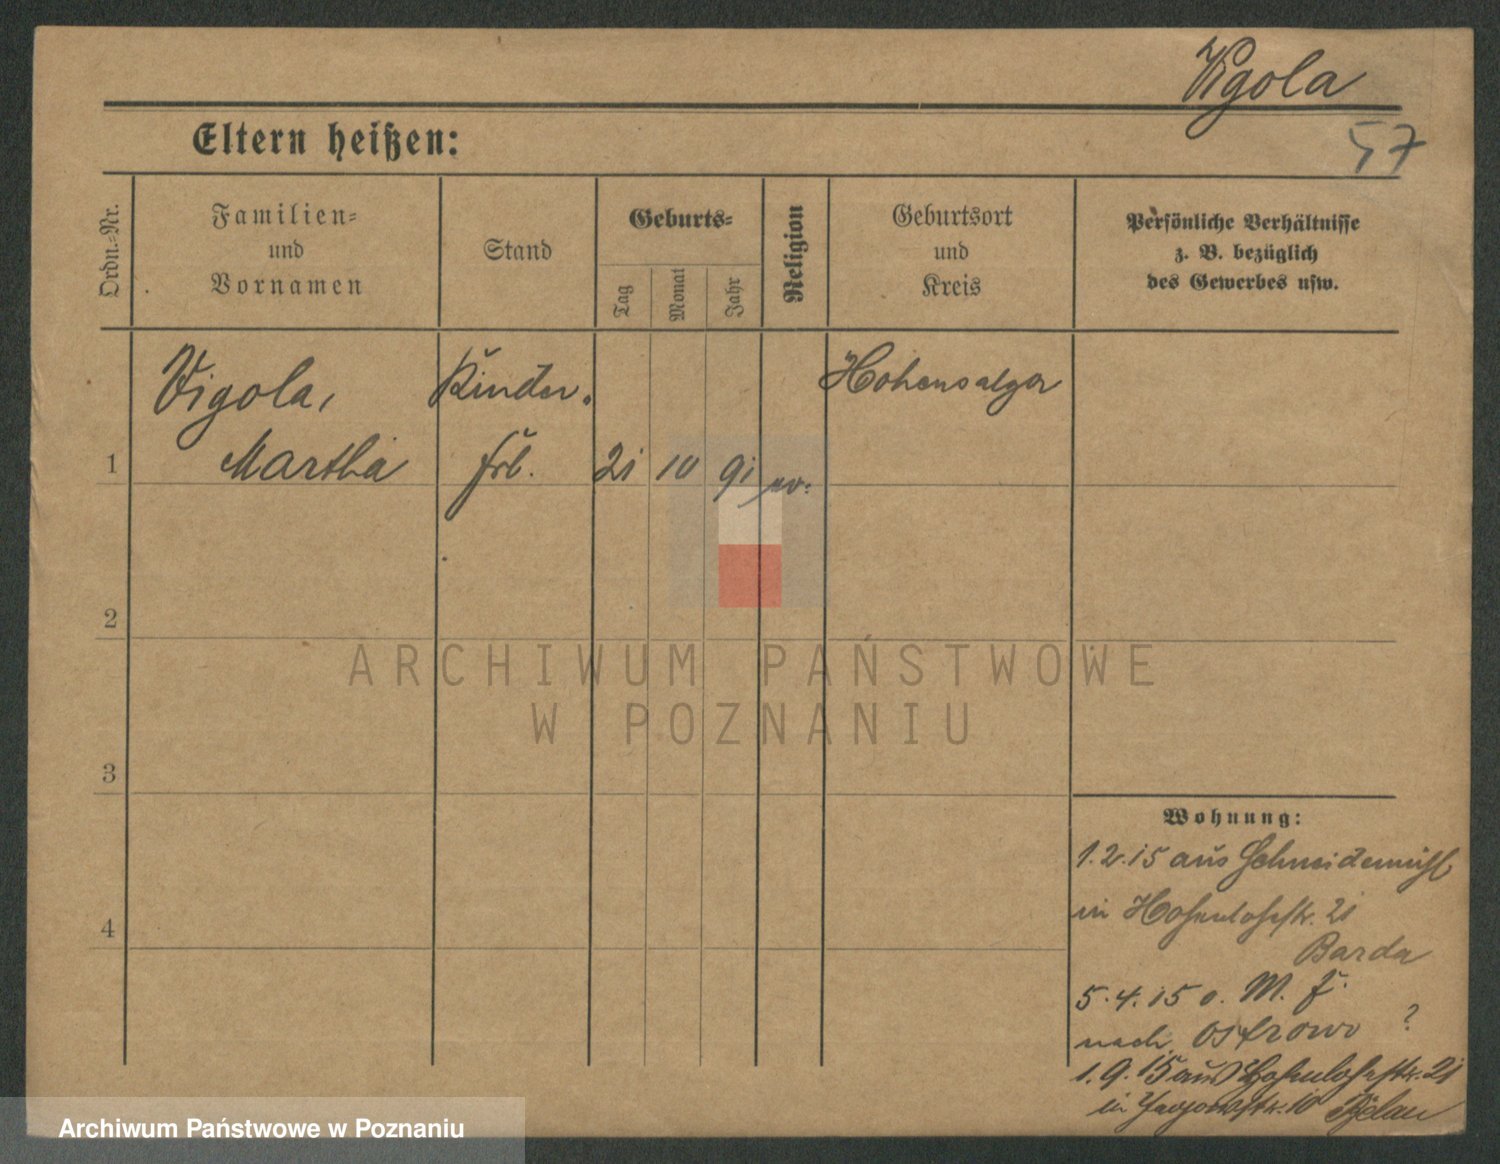 Vigola
57
Eltern heißen:
Ordn.=Nr.
Familien=
und
Vornamen
Stand
Geburts=
Tag
Monat
Jahr
Religion
Geburtsort
und
Kreis
Persönliche Verhältnisse
z. B. bezüglich
des Gewerbes usw.
Vigola,
Kinder.
Hohensalza
1
Martha
frl.
21
10
91
ev.
2
ARCHIWUM PAŃSTWOWE
W POZNANIU
3
Wohnung:
1.2.15 aus Schneidemühl
in Hohenlohestr. 21
4
Barda
5.4.15 o. M. F.
nach Ostrowo ?
1.9.15 aus Hohenlohestr. 21
in 10
Archiwum Państwowe w Poznaniu